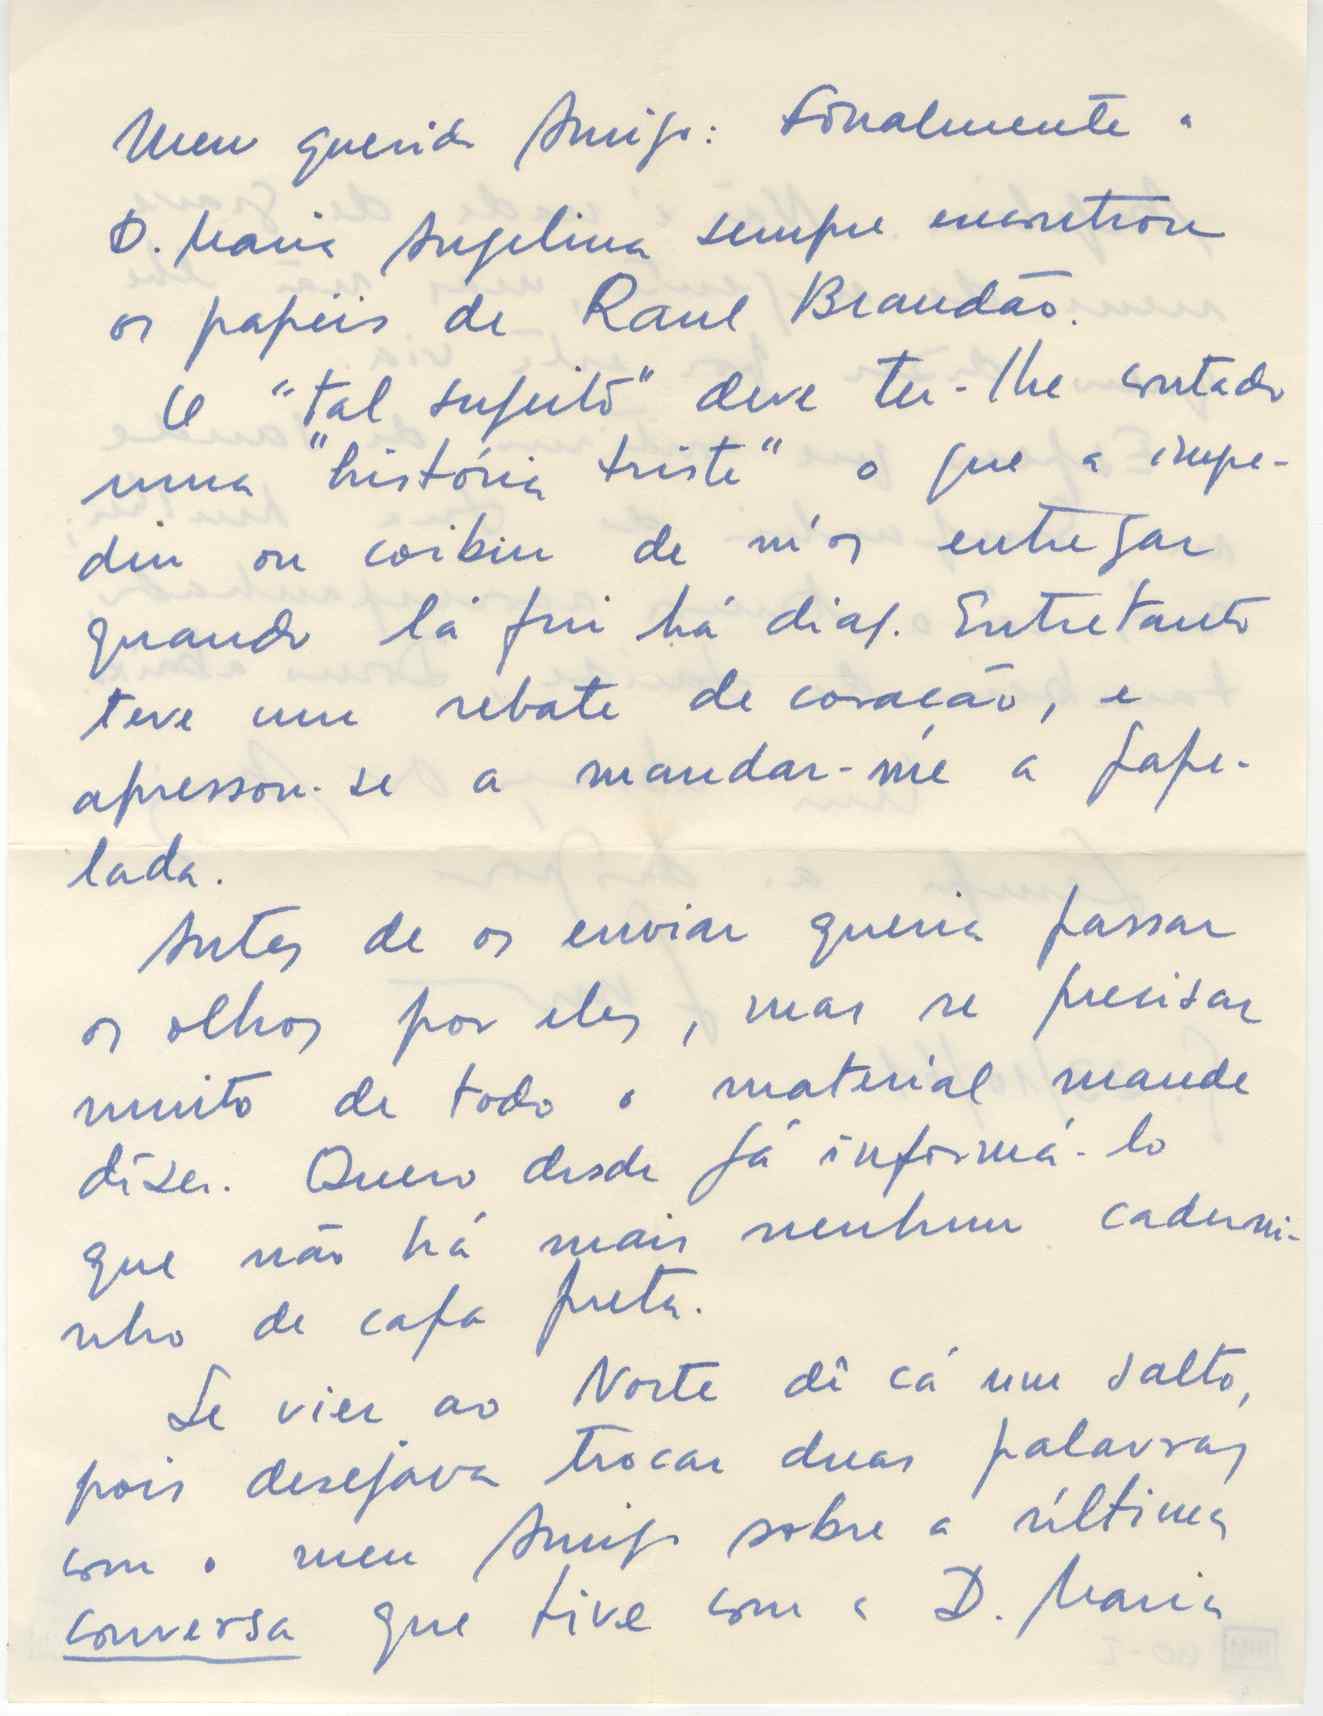 Meu querido Amigo: Finalmente a
D. Maria Angelina sempre encontrou
os papéis de Raul Brandão.
O "tal sujeito" deve ter-lhe contado
uma "história triste" o que a impe-
diu ou coibiu de m'os entregar
quando lá fui há dias. Entretanto
teve um rebate de coração, e
apressou-se a mandar-me a pape-
lada.
Antes de os enviar queria passar
os olhos por eles, mas se precisar
muito de todo o material mande
dizer. Quero desde já informá-lo
que não há mais nenhum caderni-
nho de capa preta.
Se vier ao Norte dê cá um salto,
pois desejava trocar duas palavras
com o meu Amigo sobre a última
conversa que tive com a D. Maria